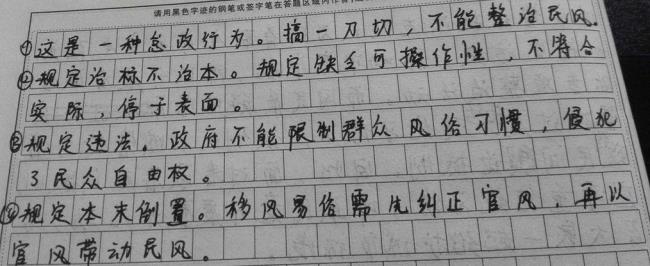 请用黑色字迹的钢笔或签字笔在答题区域内作答
①这是一种怠政行为。搞一刀切，不能整治民风。
②规定治标不治本。规定缺乏可操作性，不符合
实际，停于表面。
③规定违法。政府不能限制群众风俗习惯，侵犯
了民众自由权。
④规定本末倒置。移风易俗需先纠正官风，再以
官风带动民风。